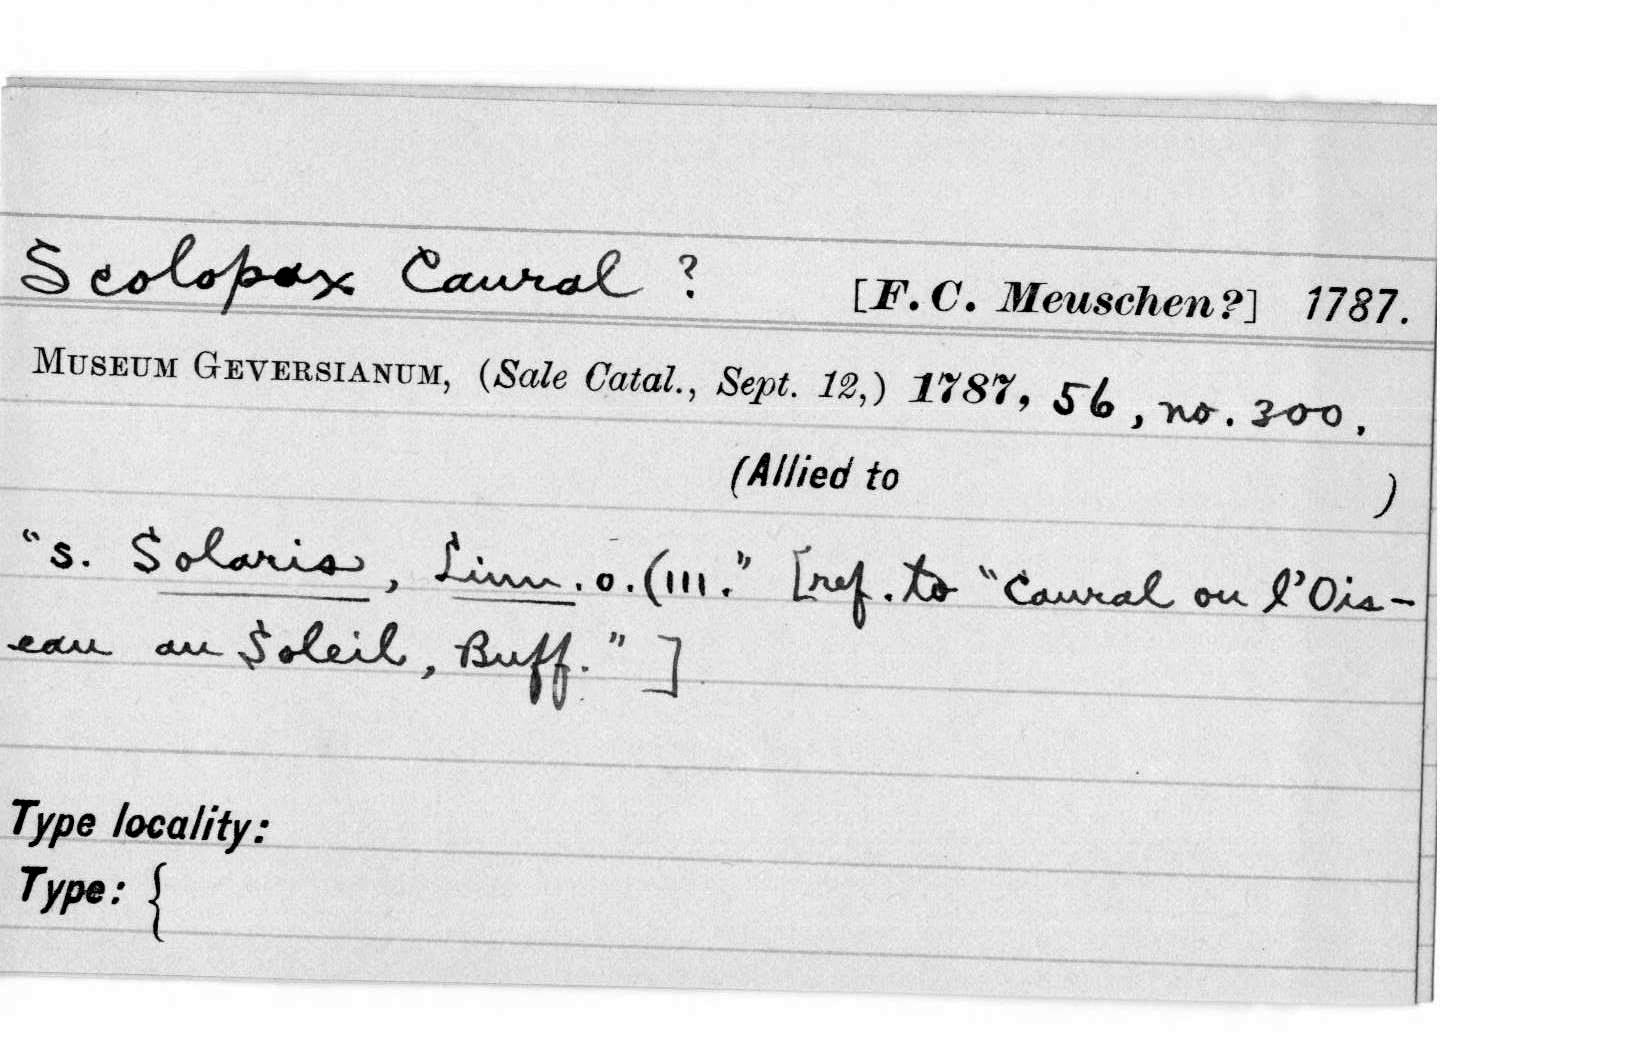 Scolopax Caural ? [F. C. Meuschen?] 1787.
MUSEUM GEVERSIANUM, (Sale Catal., Sept. 12,) 1787, 56, no. 300.
(Allied to )
"s. Solaris, Linn. o. (111." [ref. to "Caural ou l'Ois-
eau au Soleil, Buff." ]
Type locality:
Type: {